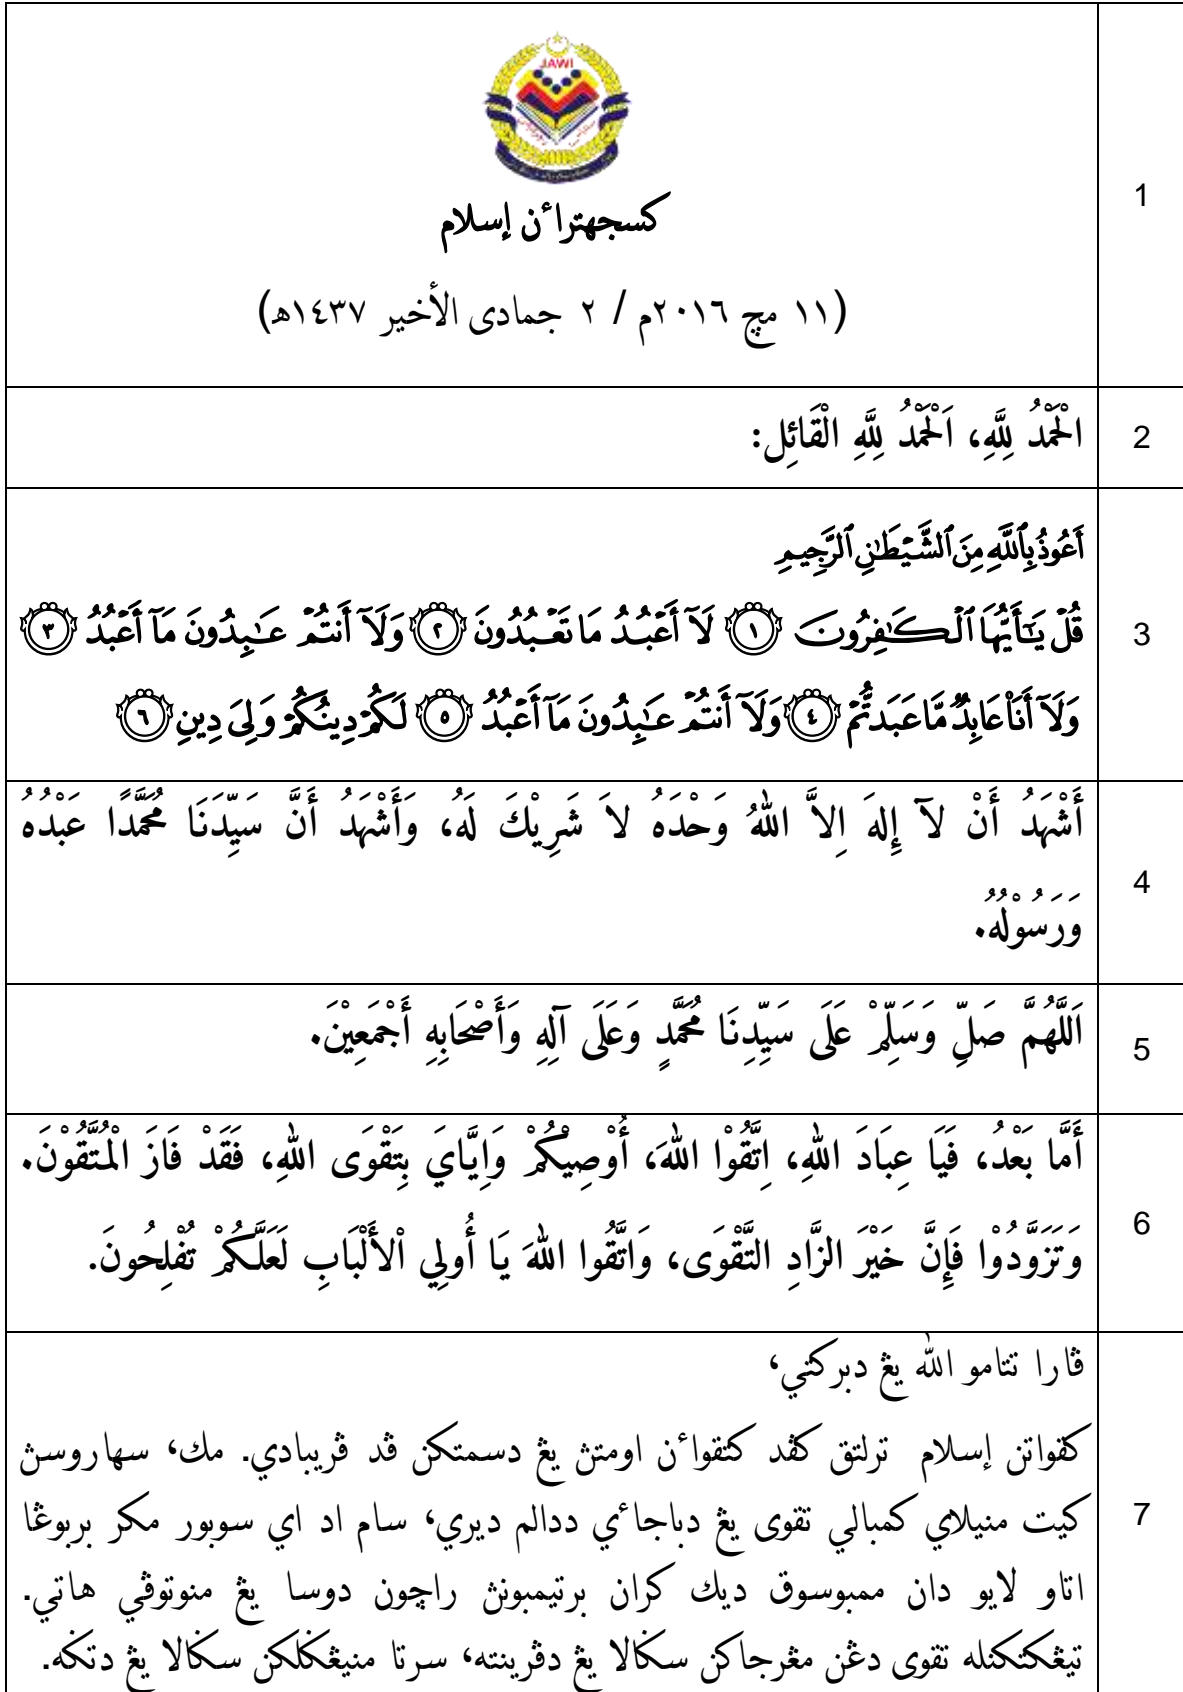 JAWI
كسجهتراءن إسلام
(١١ مچ ٢٠١٦م / ٢ جمادى الأخير ١٤٣٧ه)
1
الْحَمْدُ لِلَّهِ، اَلْحَمْدُ لِلَّهِ الْقَائِل:
2
أَعُوذُ بِٱللَّهِ مِنَ ٱلشَّيْطَٰنِ ٱلرَّجِيمِ
قُلْ يَٰٓأَيُّهَا ٱلْكَٰفِرُونَ ﴿١﴾ لَآ أَعْبُدُ مَا تَعْبُدُونَ ﴿٢﴾ وَلَآ أَنتُمْ عَٰبِدُونَ مَآ أَعْبُدُ ﴿٣﴾
3
وَلَآ أَنَا۠ عَابِدٌ مَّا عَبَدتُّمْ ﴿٤﴾ وَلَآ أَنتُمْ عَٰبِدُونَ مَآ أَعْبُدُ ﴿٥﴾ لَكُمْ دِينُكُمْ وَلِىَ دِينِ ﴿٦﴾
أَشْهَدُ أَنْ لآ إِلهَ اِلاَّ اللهُ وَحْدَهُ لاَ شَرِيْكَ لَهُ، وَأَشْهَدُ أَنَّ سَيِّدَنَا مُحَمَّدًا عَبْدُهُ
4
وَرَسُوْلُهُ.
اَللَّهُمَّ صَلِّ وَسَلِّمْ عَلَى سَيِّدِنَا مُحَمَّدٍ وَعَلَى آلِهِ وَأَصْحَابِهِ أَجْمَعِيْنَ.
5
أَمَّا بَعْدُ، فَيَا عِبَادَ اللهِ، اِتَّقُوْا اللهَ، أُوْصِيْكُمْ وَاِيَّايَ بِتَقْوَى اللهِ، فَقَدْ فَازَ الْمُتَّقُوْنَ.
6
وَتَزَوَّدُوْا فَإِنَّ خَيْرَ الزَّادِ التَّقْوَى، وَاتَّقُوا اللهَ يَا أُولِي اْلأَلْبَابِ لَعَلَّكُمْ تُفْلِحُونَ.
ڤارا تتامو الله يڠ دبركتي،
كقواتن إسلام ترلتق كڤد كتقواءن اومتڽ يڠ دسمتكن ڤد ڤريبادي. مك، سهاروسڽ
كيت منيلاي كمبالي تقوى يڠ دباجاءي ددالم ديري، سام اد اي سوبور مكر بربوڠا
7
اتاو لايو دان ممبوسوق ديك كران برتيمبونڽ راچون دوسا يڠ منوتوڤي هاتي.
تيڠكتكنله تقوى دڠن مڠرجاكن سݢالا يڠ دڤرينته، سرتا منيڠݢلكن سݢالا يڠ دتݢه.